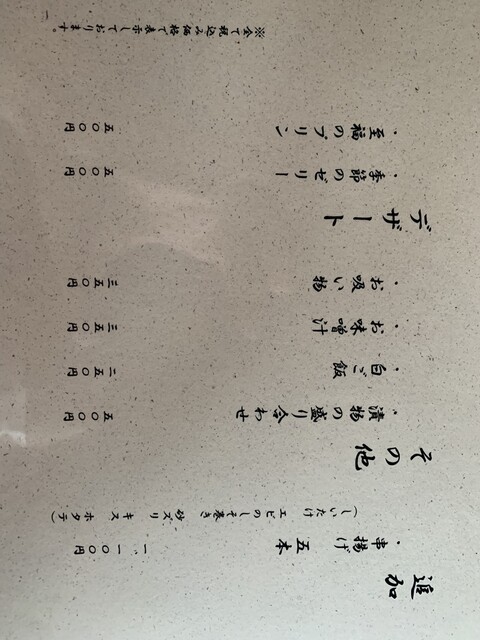 追加
・串揚げ 五本 一、一〇〇円
(しいたけ エビのしそ巻き 砂ズリ キス ホタテ)
その他
・漬物の盛り合わせ 五〇〇円
・白ご飯 二五〇円
・お味噌汁 三五〇円
・お吸い物 三五〇円
デザート
・季節のゼリー 五〇〇円
・至福のプリン 五〇〇円
※全て税込み価格で表示しております。